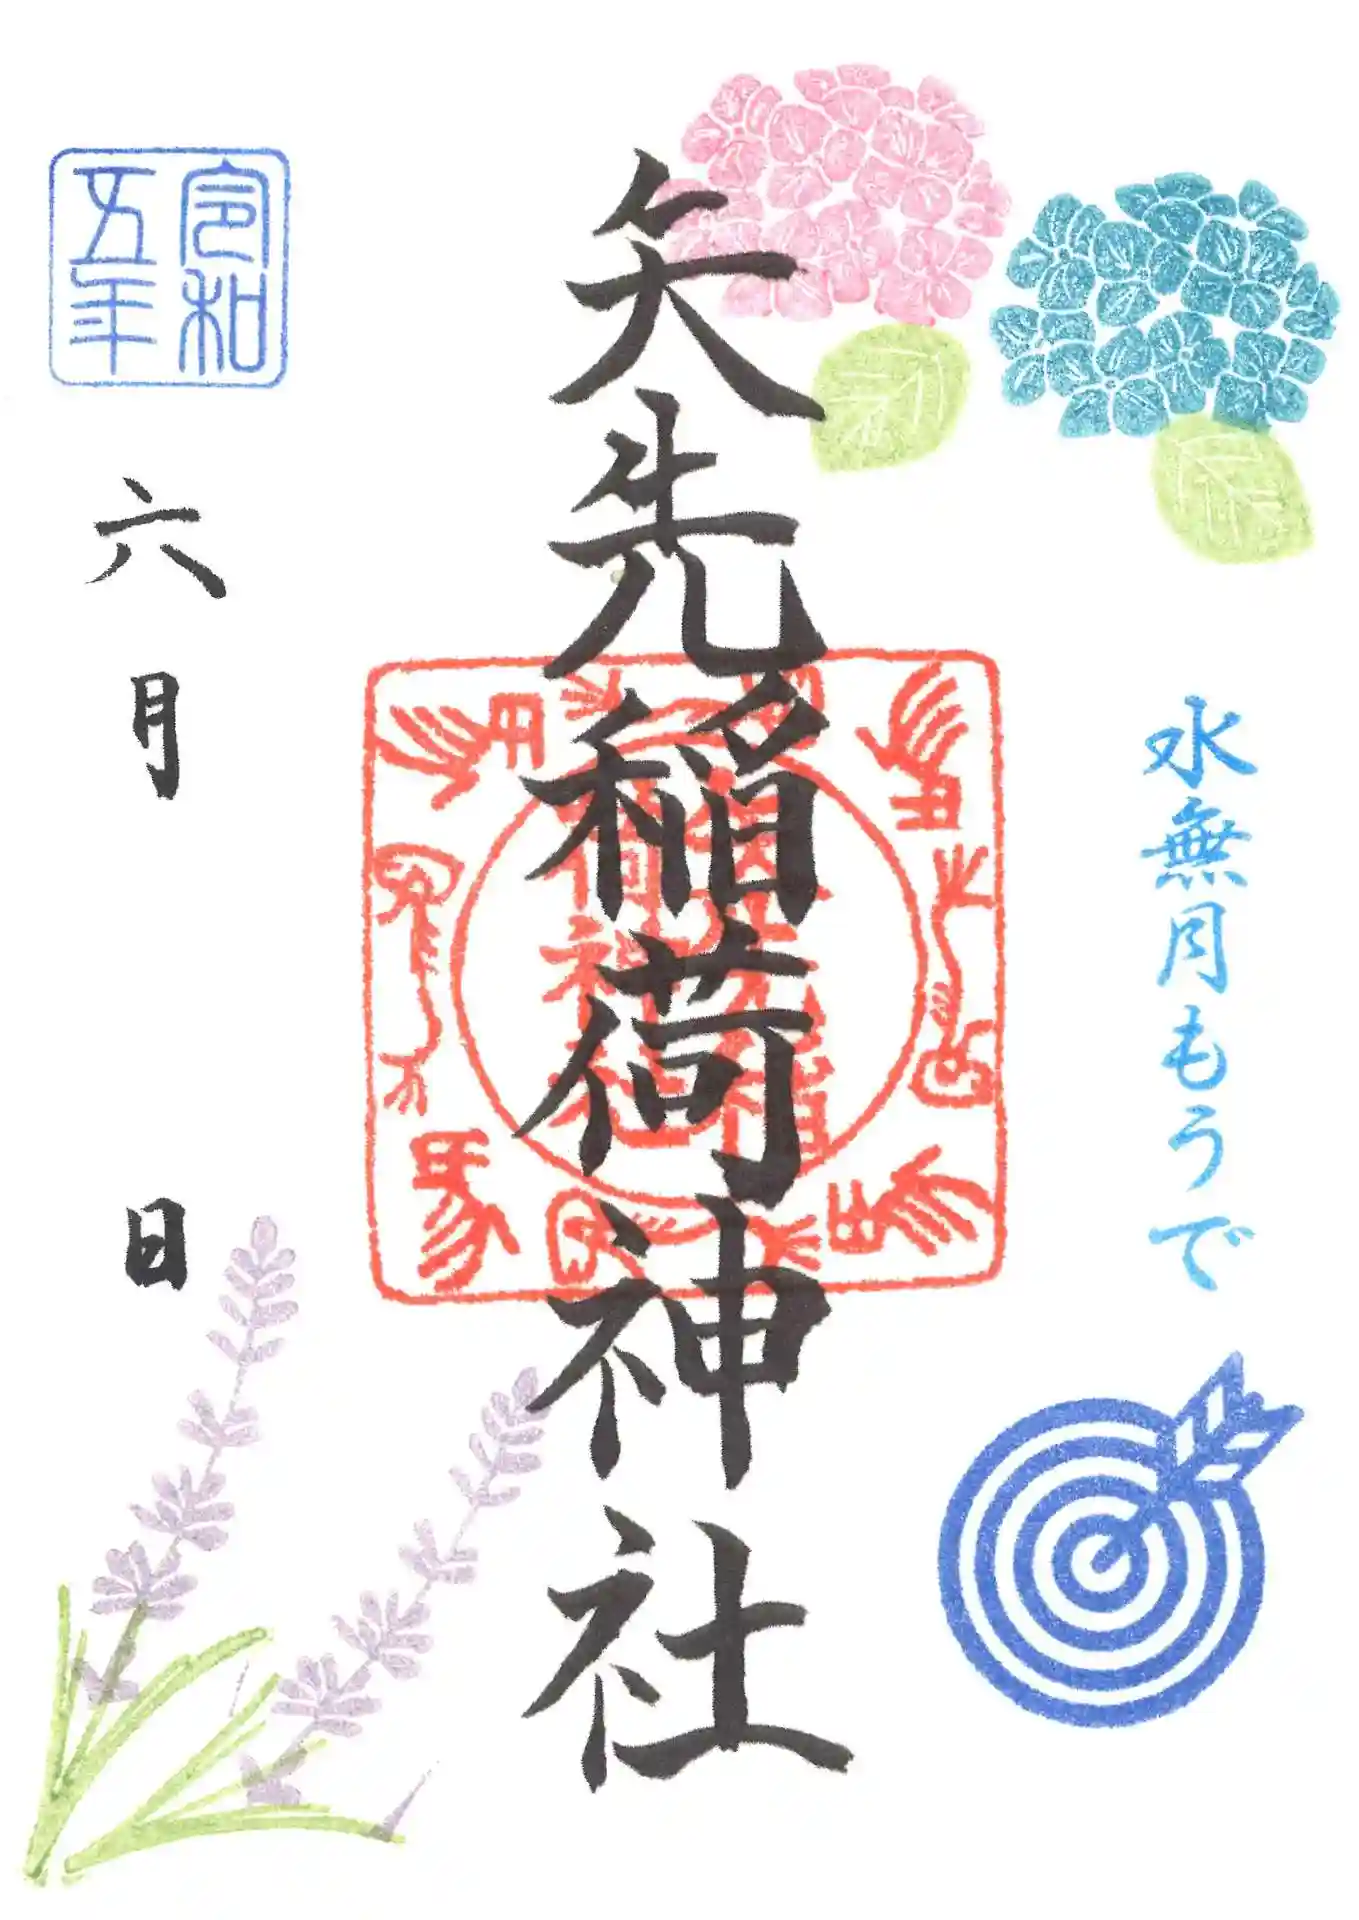 水無月もうで
矢先稲荷神社
令和
五年
六月　日